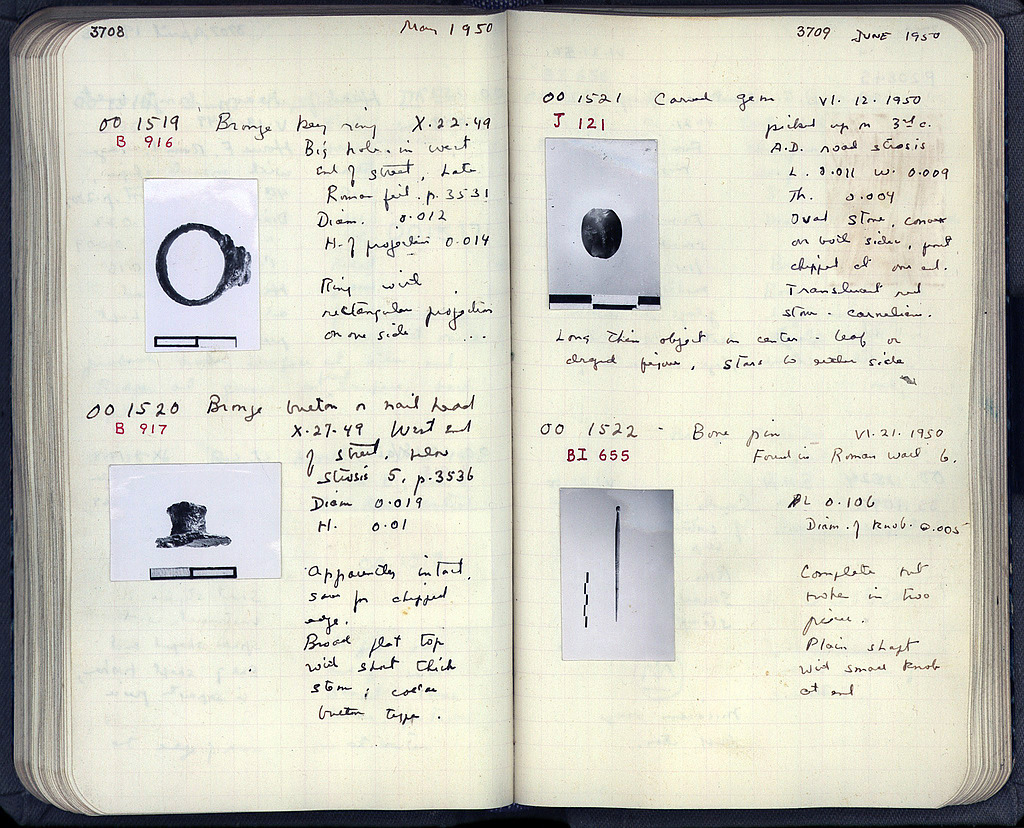 3708
May 1950
OO 1519 Bronze key ring X.22.49
B 916
Big hole in west
end of street, Late
Roman fill. p.3531
Diam. 0.012
H. of projection 0.014
Ring with
rectangular projection
on one side ...
OO 1520 Bronze button or nail head
B 917
X.27.49 West end
of street, below
stosis 5, p.3536
Diam 0.019
H. 0.01
Apparently intact,
save for chipped
edge.
Broad flat top
with short thick
stem; collar
button type.
3709 JUNE 1950
OO 1521 Carved gem VI.12.1950
J 121
picked up in 3rd c.
A.D. road stosis
L. 0.011 W. 0.009
Th. 0.004
Oval stone, convex
on both sides,
chipped at one end.
Translucent red
stone - carnelian.
Long thin object in center - leaf or
draped figure, stars to either side
OO 1522 - Bone pin VI.21.1950
BI 655
Found in Roman well 6.
L 0.106
Diam. of knob. 0.005
Complete but
broken in two
pieces.
Plain shaft
with small knob
at end